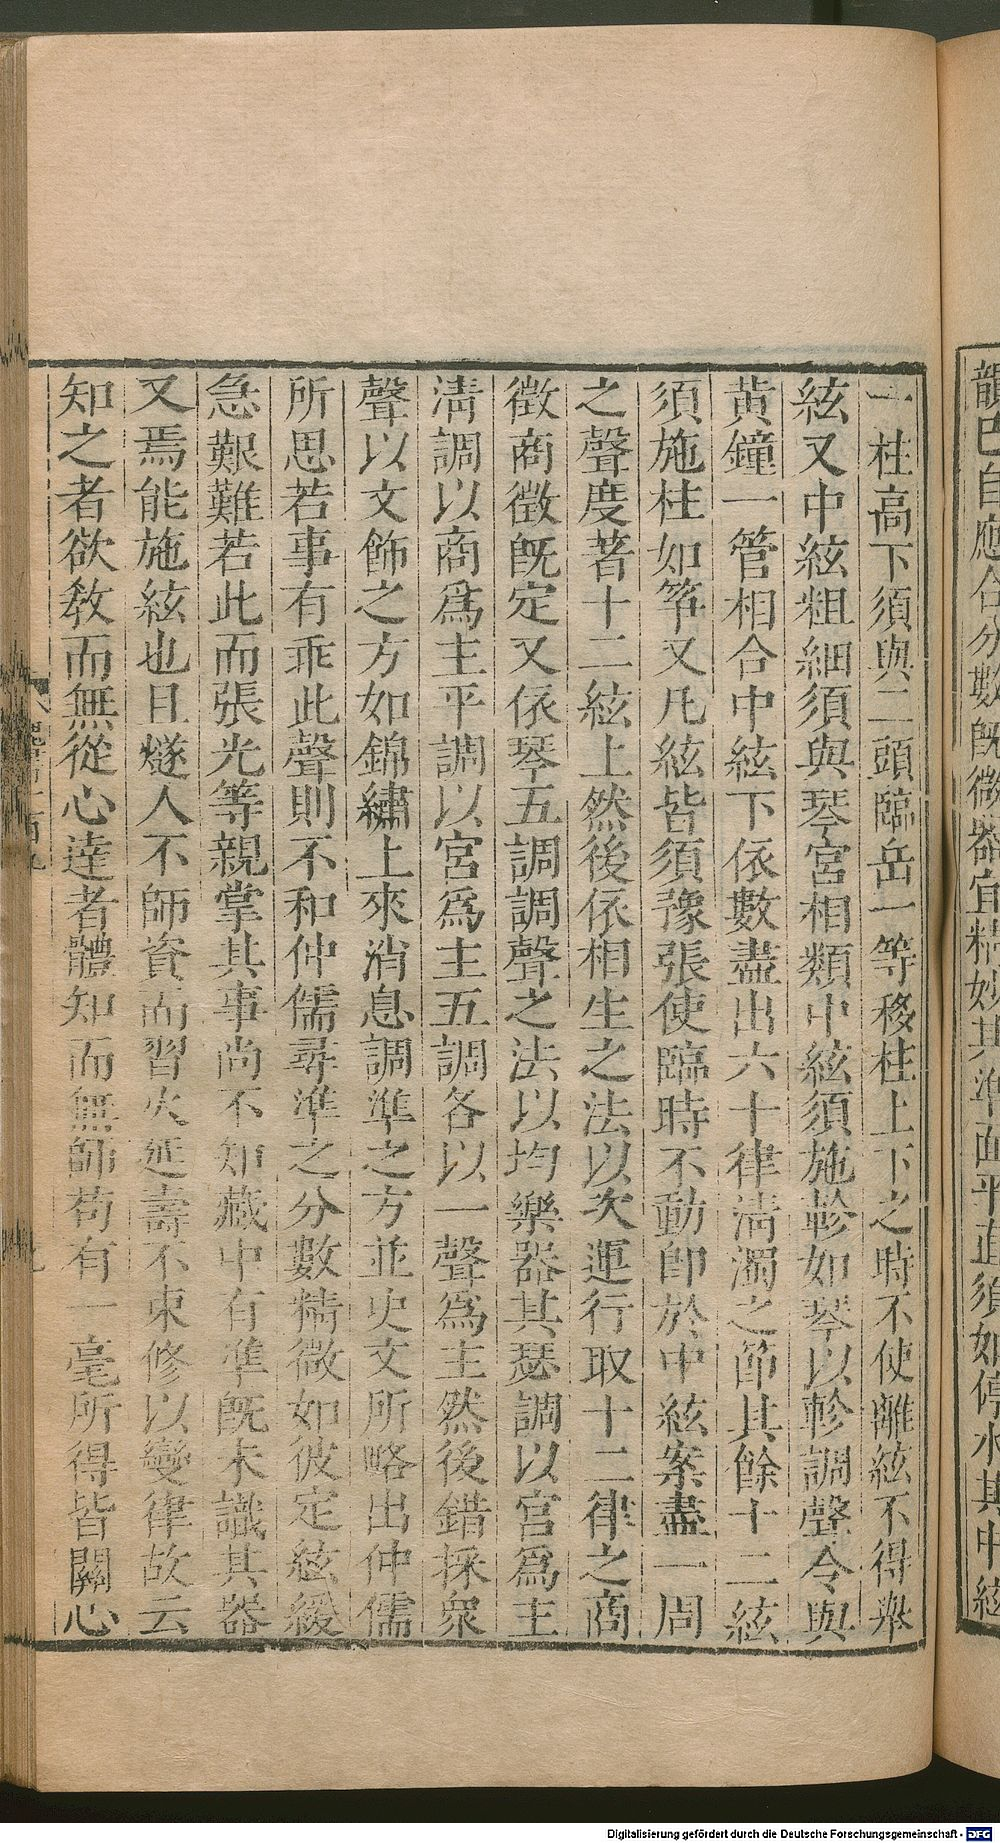 韻已自應合分數旣微器宜精妙其準面平直須如停水其中絃
一柱高下須與二頭臨岳一等移柱上下之時不使離絃不得舉
絃又中絃粗細須與琴宮相類中絃須施軫如琴以軫調聲令與
黃鐘一管相合中絃下依數盡出六十律淸濁之節其餘十二絃
須施柱如筝又凡絃皆須豫張使臨時不動卽於中絃案盡一周
之聲度著十二絃上然後依相生之法以次運行取十二律之商
徵商徵旣定又依琴五調調聲之法以均樂器其瑟調以宮爲主
淸調以商爲主平調以宮爲主五調各以一聲爲主然後錯採衆
聲以文飾之方如錦繡上來消息調準之方並史文所略出仲儒
所思若事有乖此聲則不和仲儒尋準之分數精微如彼定絃緩
急艱難若此而張光等親掌其事尚不知藏中有準旣未識其器
又焉能施絃也且燧人不師資而習火延壽不束修以變律故云
知之者欲敎而無從心達者體知而無師苟有一毫所得皆關心
Digitalisierung gefördert durch die Deutsche Forschungsgemeinschaft - DFG